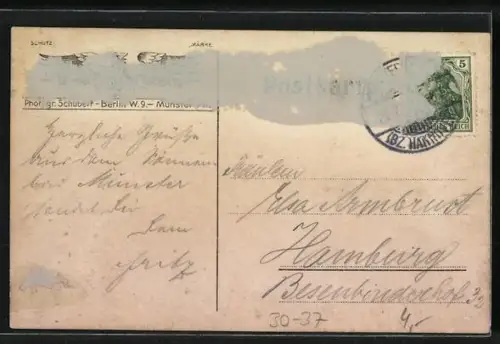 SCHUTZ MARKE
Postkarte
Phot. gr. Schubert - Berlin W. 9. - Münster
5
REICH
(BZ. HAMB
Herzliche Grüße
aus dem
bei Münster
sendet Dir
Dein
Fritz
Fräulein
Elsa Armbrust
Hamburg
Besenbinderhof 32
30-37
4,-